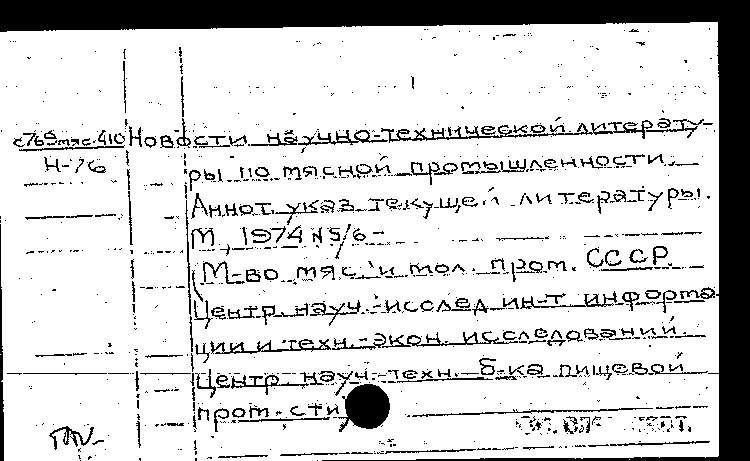 с769мяс.410 Новости научно-технической литерату-
Н-76 ры по мясной промышленности.
Аннот. указ. текущей литературы.
М., 1974 №5/6-
(М-во мяс. и мол. пром. СССР
Центр. науч.-исслед ин-т информа
ции и техн.-экон. исследований
Центр. науч.-техн. б-ка пищевой
пром-сти)